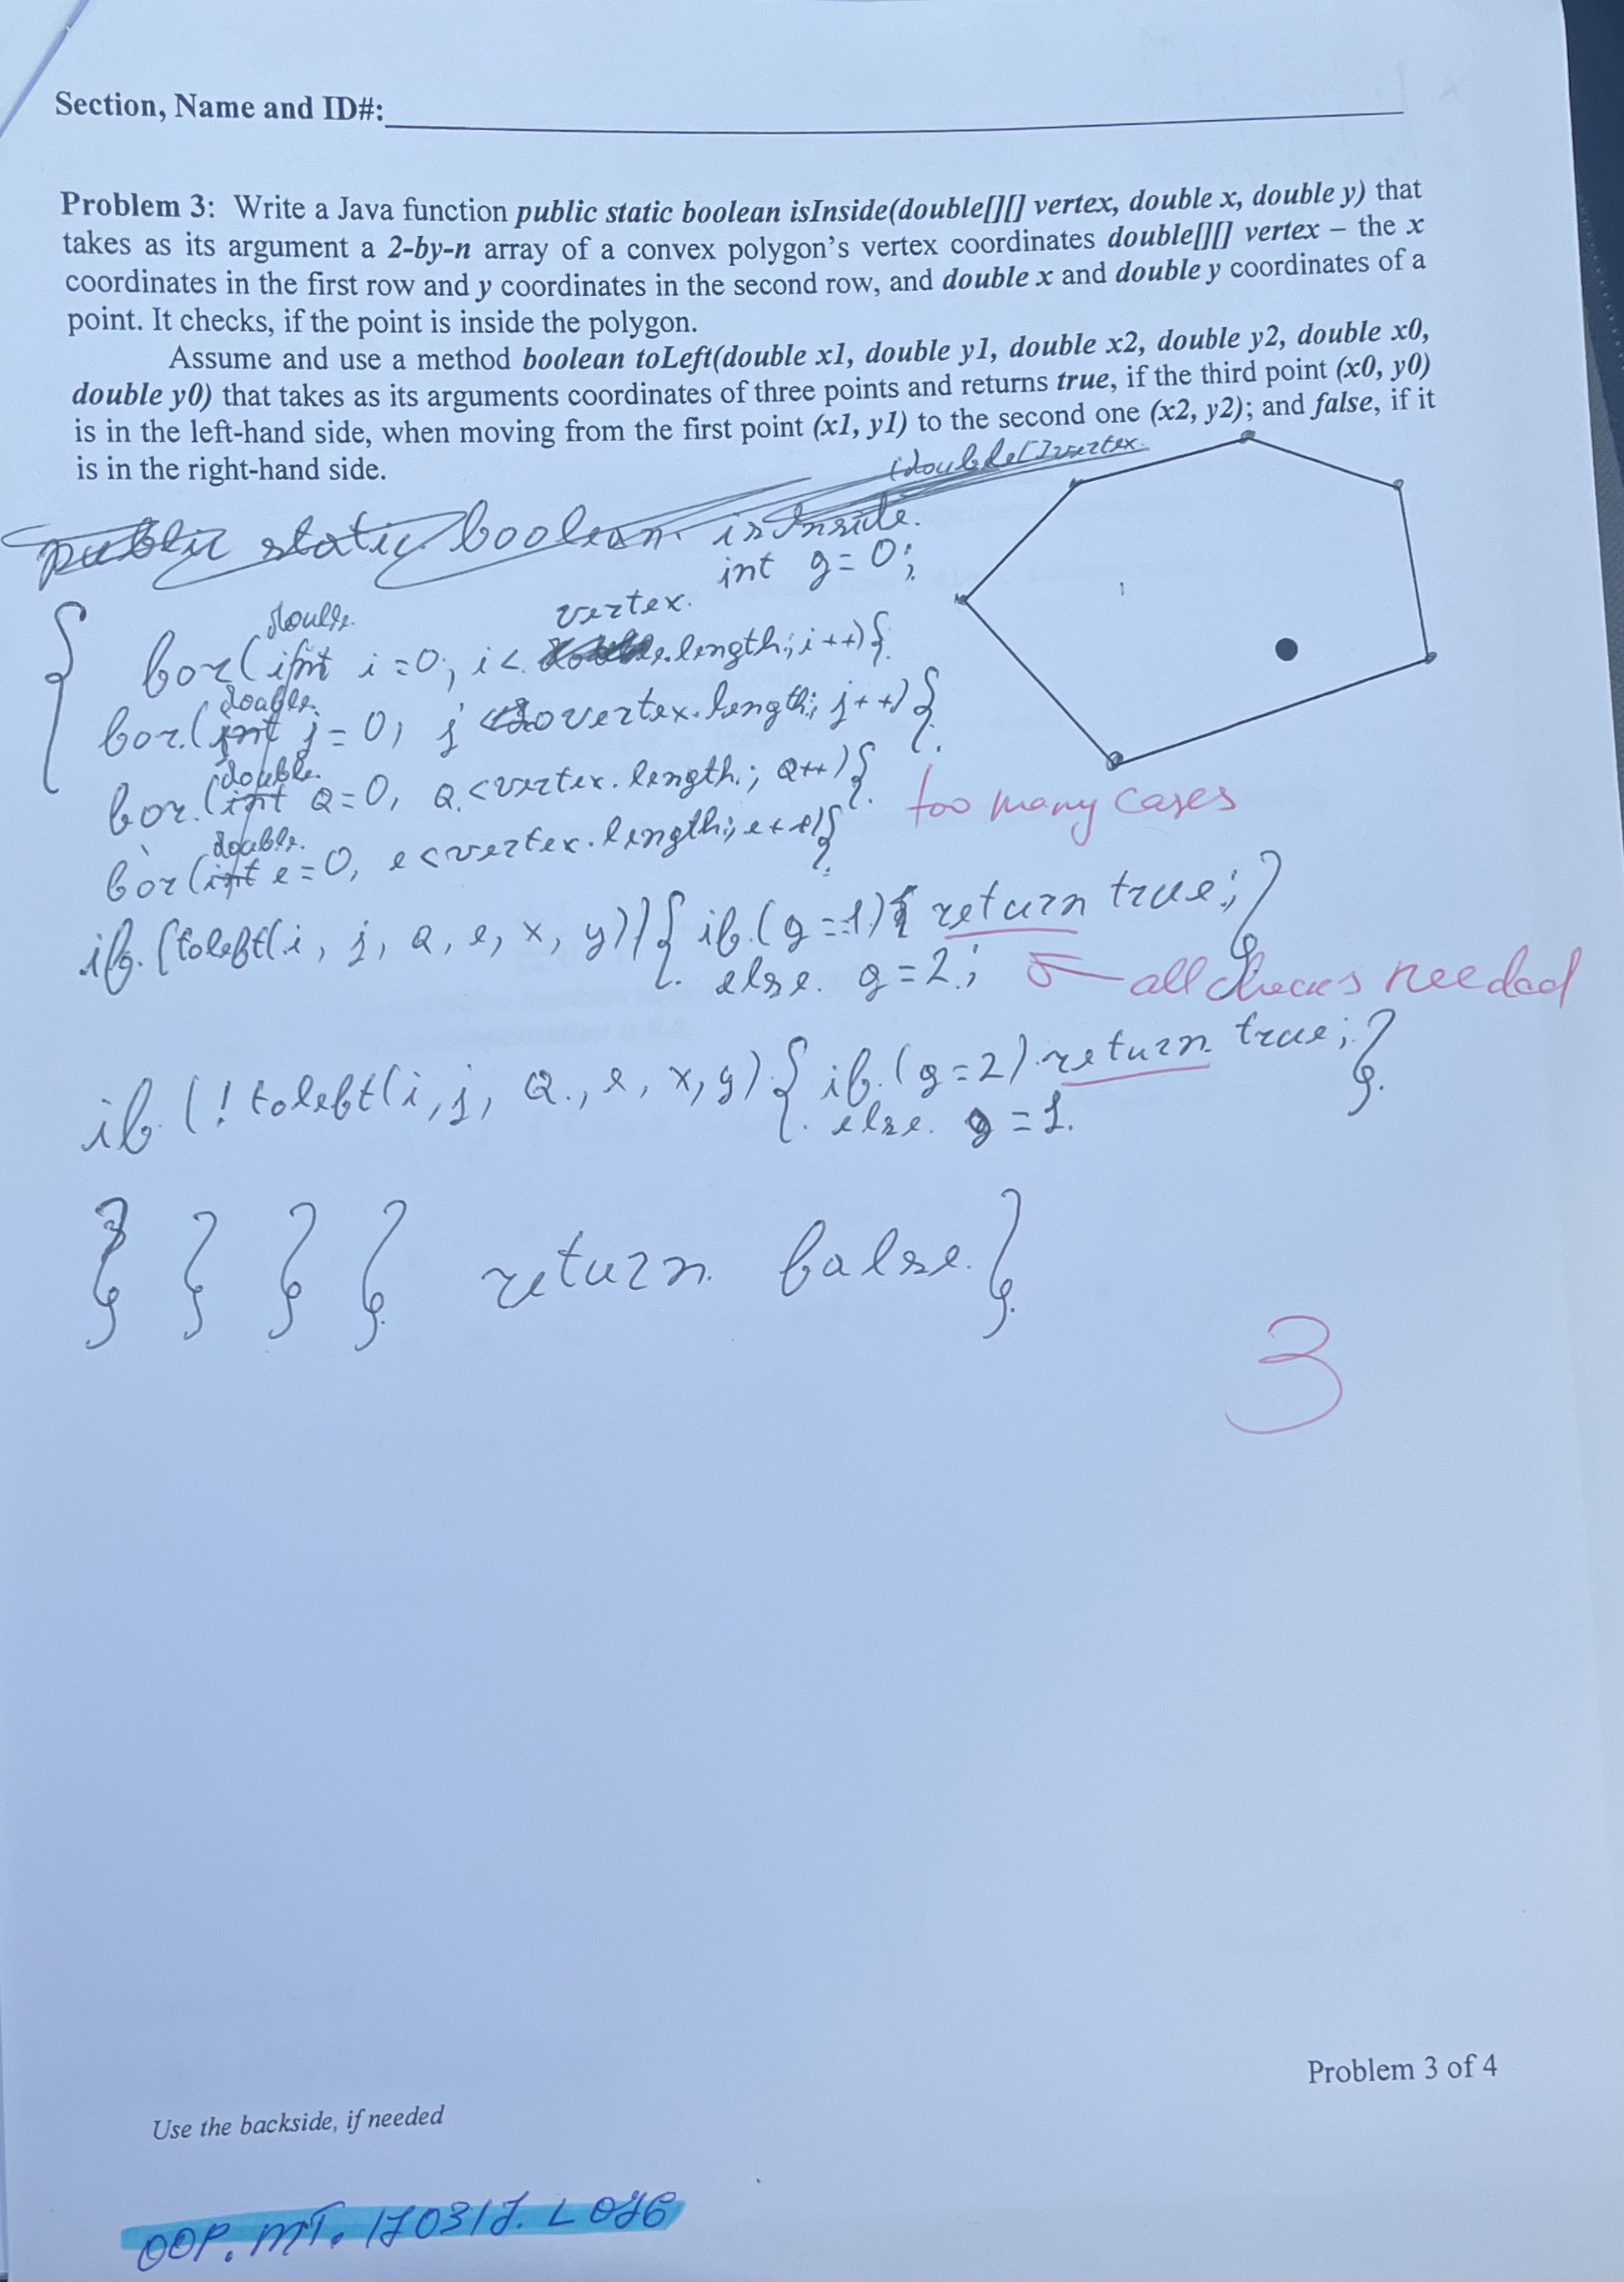 Section, Name and ID#:
Problem 3: Write a Java function public static boolean isInside(double[][] vertex, double x, double y) that
takes as its argument a 2-by-n array of a convex polygon's vertex coordinates double[][] vertex – the x
coordinates in the first row and y coordinates in the second row, and double x and double y coordinates of a
point. It checks, if the point is inside the polygon.
Assume and use a method boolean toLeft(double x1, double y1, double x2, double y2, double x0,
double y0) that takes as its arguments coordinates of three points and returns true, if the third point (x0, y0)
is in the left-hand side, when moving from the first point (x1, y1) to the second one (x2, y2); and false, if it
is in the right-hand side.
(double[]vertex.
public static boolean. isInside.
int g=0;
{
double. vertex.
for(int i=0; i<.length; i++){
double.
for.(int j=0, j <vertex.length; j++){
double.
for.(int Q=0, Q.<vertex.length.; Q++){
too many cases
double.
for(int e=0, e<vertex.length; e++){
if.(toleft(i, j, Q, e, x, y)){ if.(g=1){ return true;}
else. g=2.;
all checks needed
if.(!toleft(i, j, Q., e, x, y).{ if.(g=2).return. true;}
else. g=1.
} } } } return. false.}
3
Problem 3 of 4
Use the backside, if needed
OOP. MT. 170317. L076